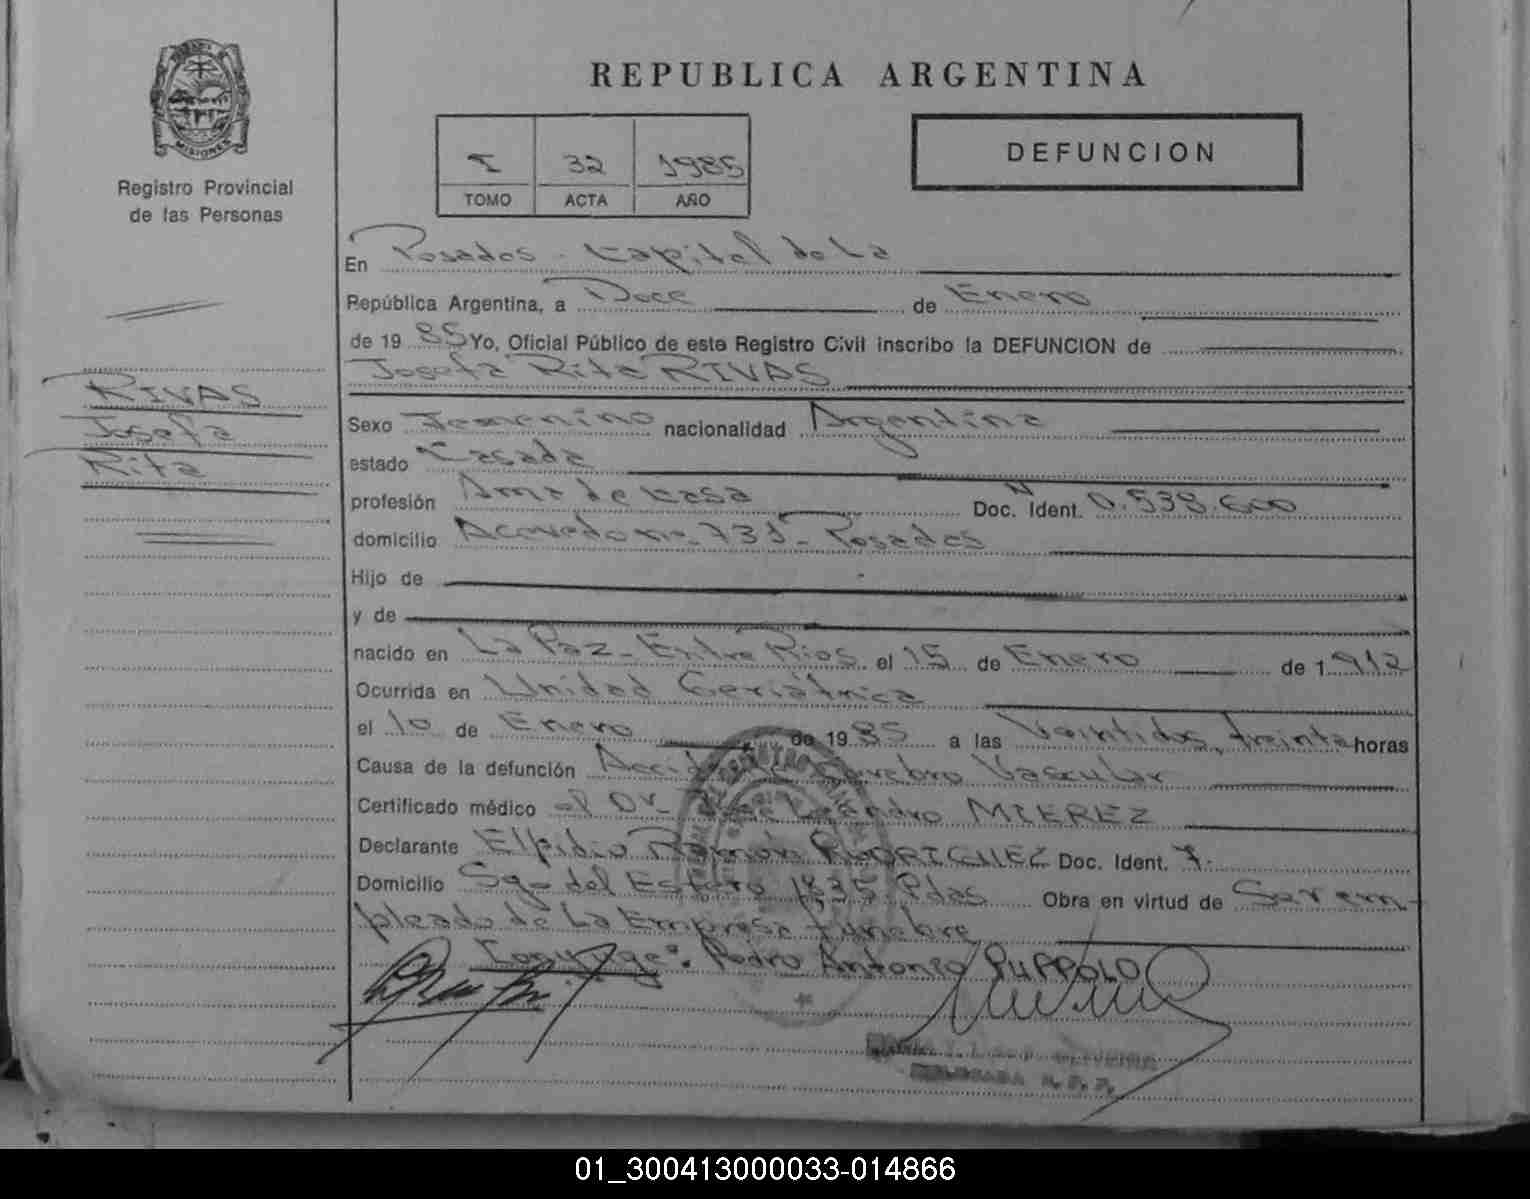 MISIONES
Registro Provincial
de las Personas
RIVAS
Josefa
Rita
REPUBLICA ARGENTINA
I 32 1985
TOMO ACTA AÑO
DEFUNCION
En Posadas - Capital de La
República Argentina, a Doce de Enero
de 19 85 Yo, Oficial Público de este Registro Civil inscribo la DEFUNCION de
Josefa Rita RIVAS
Sexo Femenino nacionalidad Argentina
estado Casada
profesión Ama de casa Doc. Ident. N 0.539.600
domicilio Acevedo 731 - Posadas
Hijo de
y de
nacido en La Paz - Entre Rios el 15 de Enero de 1.912
Ocurrida en Unidad Geriátrica
el 10 de Enero de 1985 a las Veintidos, treinta horas
Causa de la defunción Accidente Cerebro Vascular
Certificado médico el Dr. Leandro MIEREZ
Declarante Elpidio Ramón RODRIGUEZ Doc. Ident. 7.
Domicilio Sgo del Estero 1835 Pdas Obra en virtud de Ser em-
pleado de La Empresa fúnebre
Conyuge: Pedro Antonio PUPPOLO
01_300413000033-014866